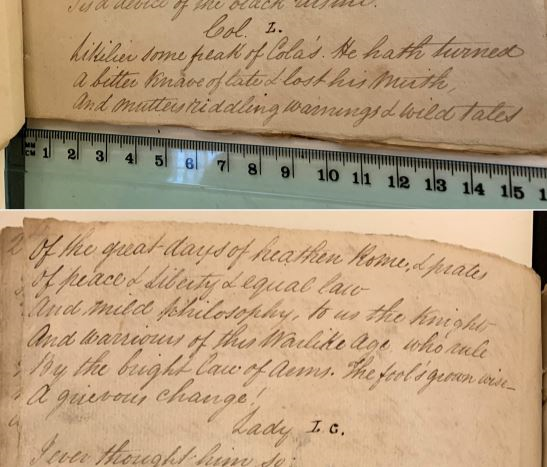 is a device of the black
Col. L.
Likilier some freak of Cola's. He hath turned
a bitter Knave of late & lost his Mirth,
And mutters riddling warnings & wild tales
MM
CM 1 2 3 4 5 6 7 8 9 10 11 12 13 14 15 1
Of the great days of heathen Rome, & prates
Of peace & Liberty & equal law
And mild philosophy, to us the Knights
And warriours of this Warlike Age who rule
By the bright law of Arms. The fool's grown wise—
A grievous change!
Lady I. C.
I ever thought him so;